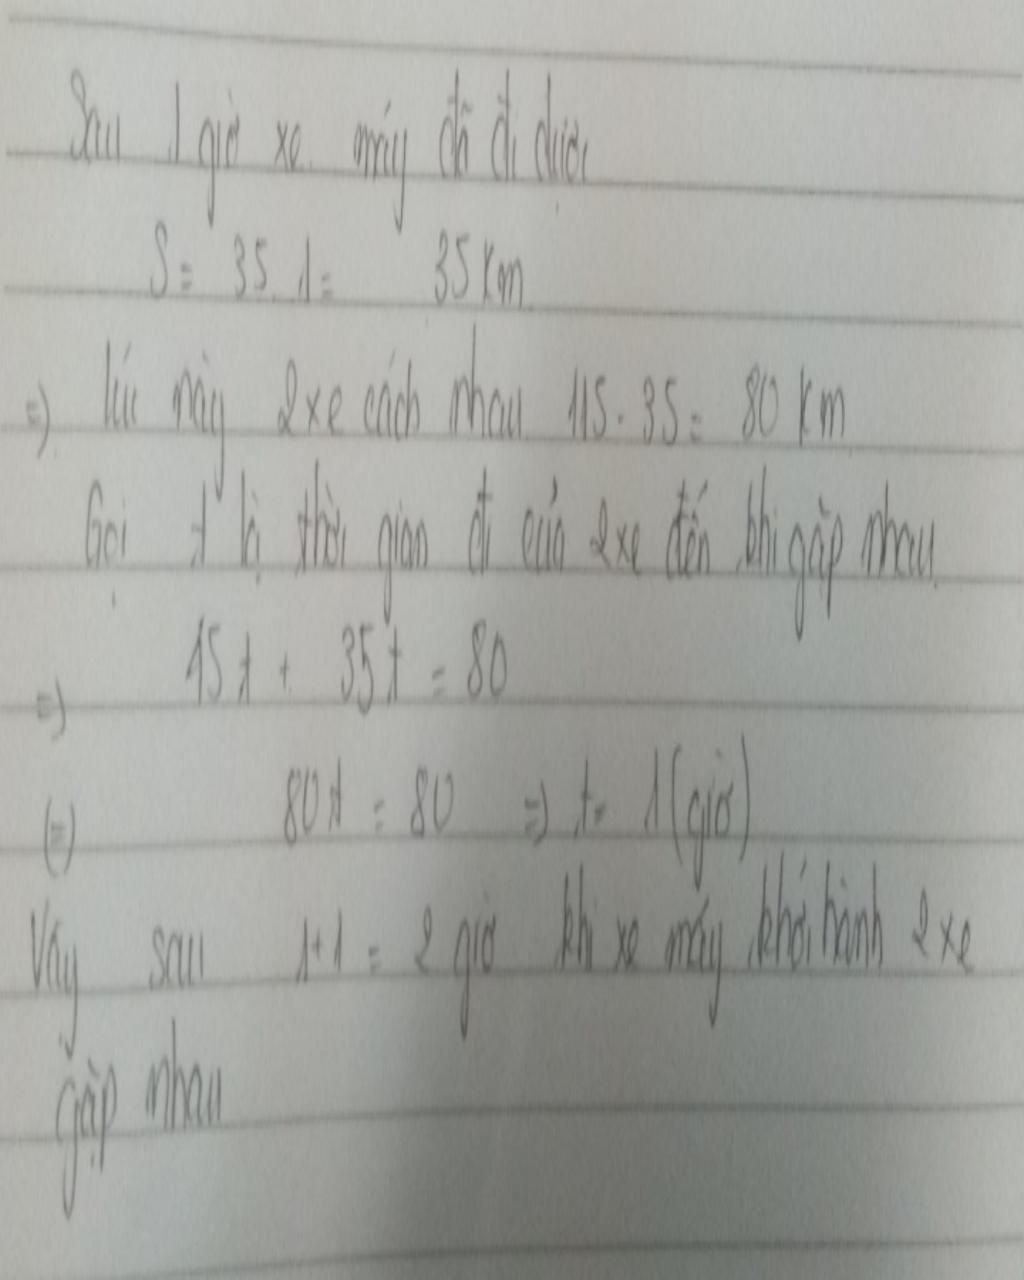 Sau 1 giờ xe máy đã đi được
S = 35.1 = 35 km
=) lúc này 2 xe cách nhau 115 - 35 = 80 km
Gọi t là thời gian đi của 2 xe đến khi gặp nhau
=) 45t + 35t = 80
(=) 80t = 80 =) t = 1 (giờ)
Vậy sau 1+1 = 2 giờ khi xe máy khởi hành 2 xe
gặp nhau